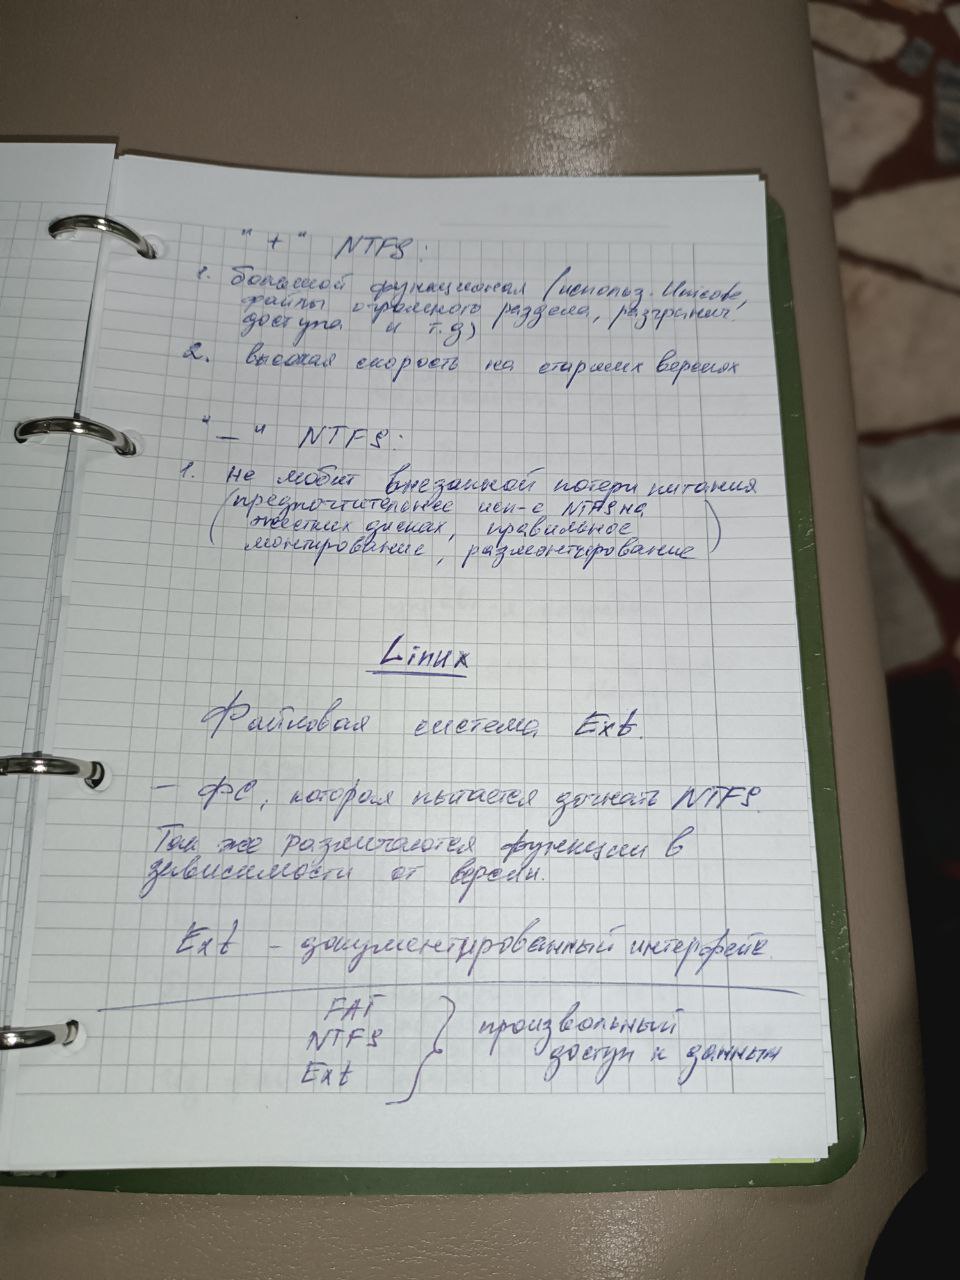 "+" NTFS:
1. большой функционал (использ.
файлы огромного раздела, разгранич.
доступа и т.д)
2. высокая скорость на старших версиях
"—" NTFS:
1. не любит внезапной потери питания
(предпочтительнее исп-е NTFS на
жестких дисках, правильное
монтирование, размонтирование)
Linux
Файловая система Ext.
— ФС, которая пытается догнать NTFS.
Так же различаются функции в
зависимости от версии.
Ext - документированный интерфейс.
FAT
NTFS
Ext
} произвольный
доступ к данным